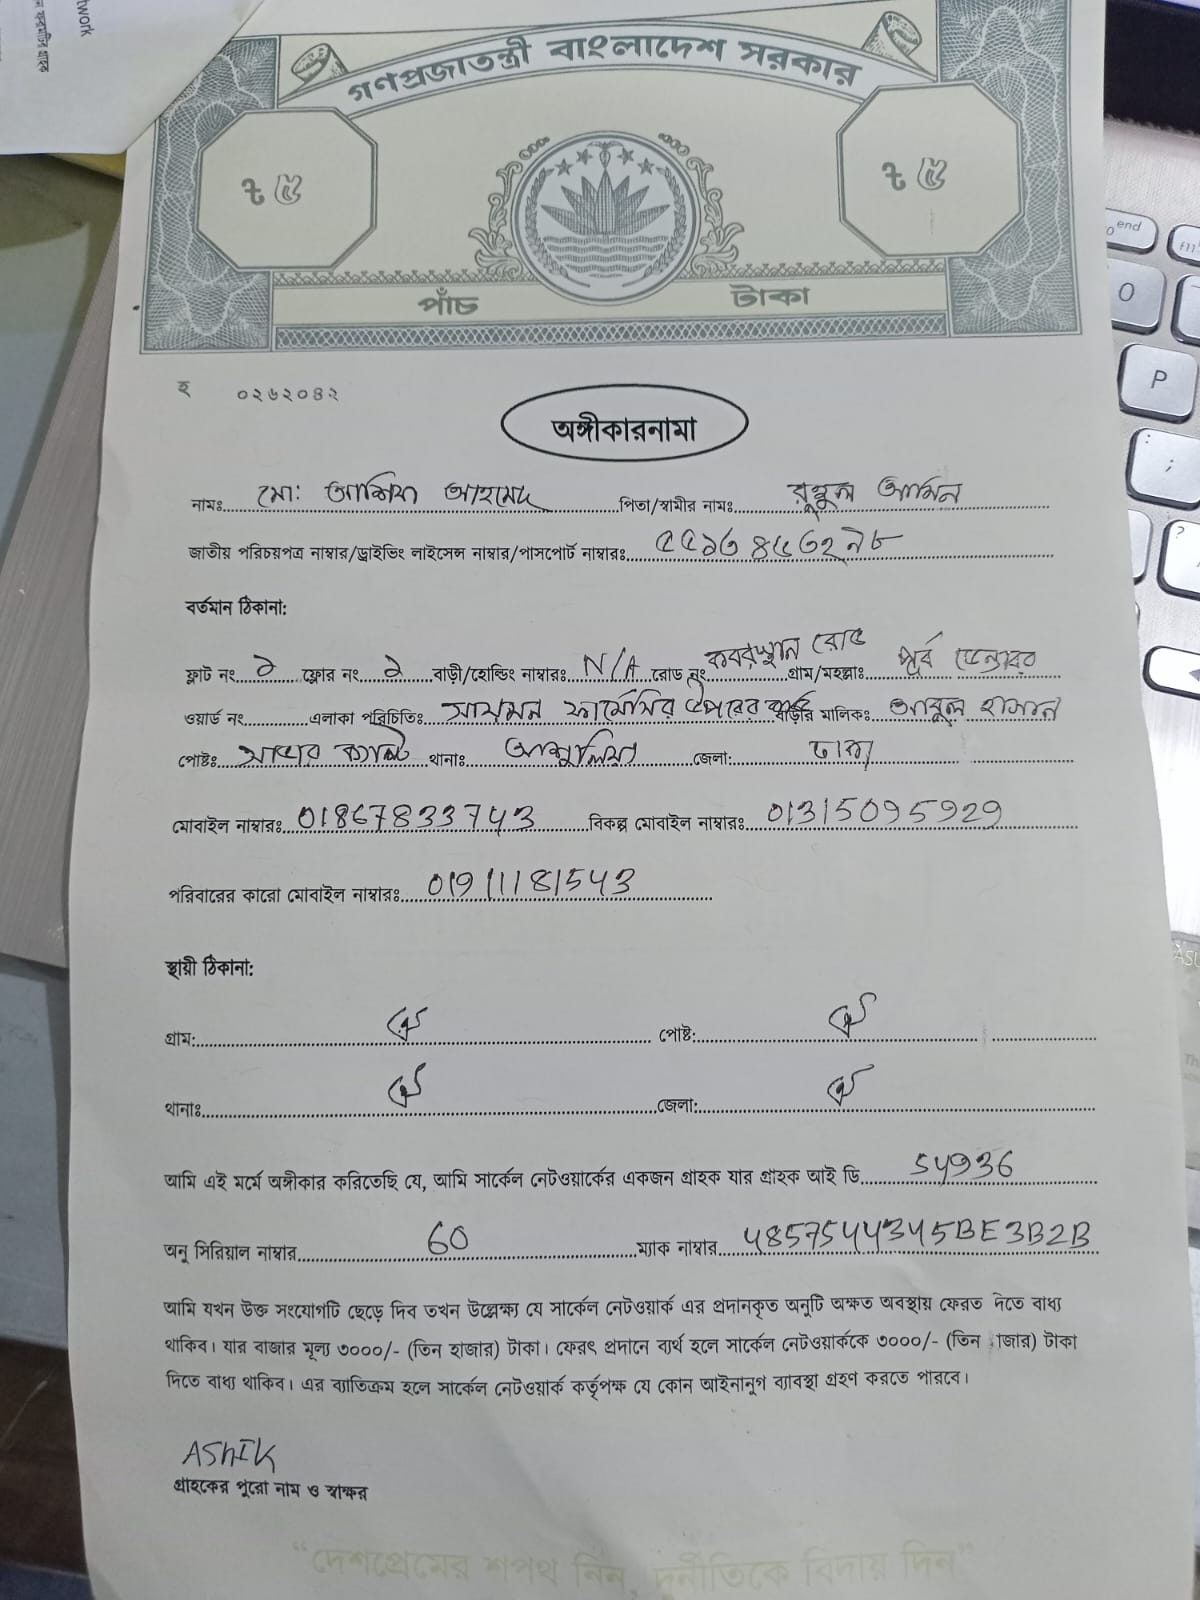 twork
গণপ্রজাতন্ত্রী বাংলাদেশ সরকার
৳ ৫ ৳ ৫
পাঁচ টাকা
হ ০২৬২০৪২
অঙ্গীকারনামা
নামঃ মো: আশিক আহমেদ পিতা/স্বামীর নামঃ রুহুল আমিন
জাতীয় পরিচয়পত্র নাম্বার/ড্রাইভিং লাইসেন্স নাম্বার/পাসপোর্ট নাম্বারঃ ৫৫১৩৪৫৩২৯৮
বর্তমান ঠিকানা:
ফ্লাট নং ১ ফ্লোর নং ১ বাড়ী/হোল্ডিং নাম্বারঃ N/A রোড নং কবরস্থান রোড গ্রাম/মহল্লাঃ পূর্ব
ওয়ার্ড নং এলাকা পরিচিতিঃ ফার্মেসির উপরের বাড়ীর মালিকঃ আবুল হাসান
পোষ্টঃ সাভার ক্যান্ট থানাঃ আশুলিয়া জেলা: ঢাকা
মোবাইল নাম্বারঃ 01867833743 বিকল্প মোবাইল নাম্বারঃ 01315095929
পরিবারের কারো মোবাইল নাম্বারঃ 01911181543
স্থায়ী ঠিকানা:
গ্রাম: ঐ পোষ্ট: ঐ
থানাঃ ঐ জেলা: ঐ
আমি এই মর্মে অঙ্গীকার করিতেছি যে, আমি সার্কেল নেটওয়ার্কের একজন গ্রাহক যার গ্রাহক আই ডি 54936
অনু সিরিয়াল নাম্বার 60 ম্যাক নাম্বার 4857544345BE3B2B
আমি যখন উক্ত সংযোগটি ছেড়ে দিব তখন উল্লেক্ষ্য যে সার্কেল নেটওয়ার্ক এর প্রদানকৃত অনুটি অক্ষত অবস্থায় ফেরত দিতে বাধ্য
থাকিব। যার বাজার মূল্য ৩০০০/- (তিন হাজার) টাকা। ফেরৎ প্রদানে ব্যর্থ হলে সার্কেল নেটওয়ার্ককে ৩০০০/- (তিন হাজার) টাকা
দিতে বাধ্য থাকিব। এর ব্যাতিক্রম হলে সার্কেল নেটওয়ার্ক কর্তৃপক্ষ যে কোন আইনানুগ ব্যাবস্থা গ্রহণ করতে পারবে।
ASHIK
গ্রাহকের পুরো নাম ও স্বাক্ষর
"দেশপ্রেমের শপথ নিন, দুর্নীতিকে বিদায় দিন"
end
O
P
;
?